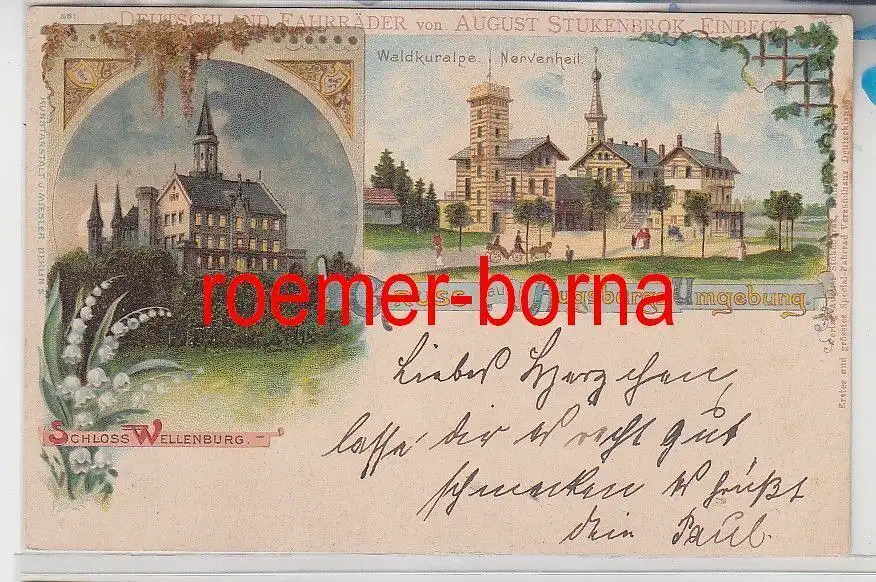 551
DEUTSCHLAND FAHRRÄDER von AUGUST STUKENBROK, EINBECK
Waldkuralpe. Nervenheil.
KUNSTANSTALT J. MIESLER BERLIN S.
roemer-borna
Gruss aus Augsburgs Umgebung.
SCHLOSS WELLENBURG.
Erstes und grösstes Special-Fahrrad Versandhaus Deutschlands
Liebes Herzchen,
lasse dir es recht gut
schmecken es grüßt
dein Paul.